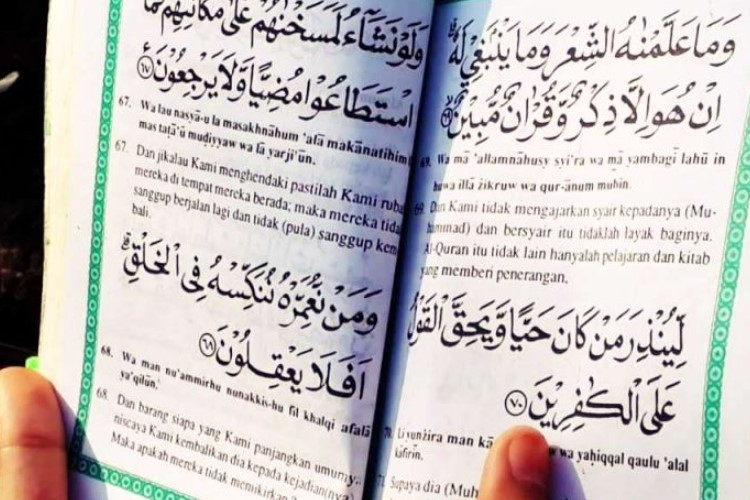 وَلَوْ نَشَآءُ لَمَسَخْنٰهُمْ عَلٰى مَكَانَتِهِمْ فَمَا
اسْتَطَاعُوْا مُضِيًّا وَّلَا يَرْجِعُوْنَ ۝٦٧
67. Wa lau nasyā-u la masakhnāhum 'alā makānatihim
mas taṭā'ū muḍiyyaw wa lā yarji'ūn.
67. Dan jikalau Kami menghendaki pastilah Kami ruba
mereka di tempat mereka berada; maka mereka tida
sanggup berjalan lagi dan tidak (pula) sanggup kem
bali.
وَمَنْ نُّعَمِّرْهُ نُنَكِّسْهُ فِى الْخَلْقِ
اَفَلَا يَعْقِلُوْنَ ۝٦٨
68. Wa man nu'ammirhu nunakkis-hu fil khalqi afalā
ya'qilūn.
68. Dan barang siapa yang Kami panjangkan umurnya
niscaya Kami kembalikan dia kepada kejadian(nya)
Maka apakah mereka tidak memikirkan
وَمَا عَلَّمْنٰهُ الشِّعْرَ وَمَا يَنْۢبَغِيْ لَهٗ
اِنْ هُوَ اِلَّا ذِكْرٌ وَّقُرْاٰنٌ مُّبِيْنٌ ۝٦٩
69. Wa mā 'allamnāhusy syi'ra wa mā yambagī lahū in
huwa illā żikruw wa qur-ānum mubin.
69. Dan Kami tidak mengajarkan syair kepadanya (Mu-
hammad) dan bersyair itu tidaklah layak baginya.
Al-Quran itu tidak lain hanyalah pelajaran dan kitab
yang memberi penerangan,
لِّيُنْذِرَ مَنْ كَانَ حَيًّا وَّيَحِقَّ الْقَوْلُ
عَلَى الْكٰفِرِيْنَ ۝٧٠
70. Li yunżira man kā wa yaḥiqqal qaulu 'alal
kāfirin.
Supaya dia (Muh